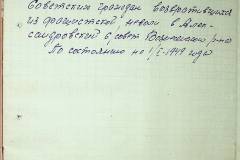 Советских граждан возвратившихся
из фашистской неволи в Алек-
сандровский с/совет
По состоянию на 1/I-1949 года